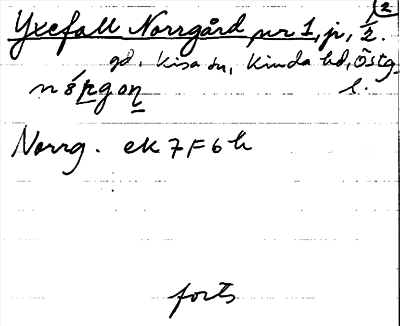 2
Yxefall Norrgård nr 1, jr, 1/2.
gd, Kisa sn, Kinda hd, Östg.
l.
Norrg. ek 7F6h
forts